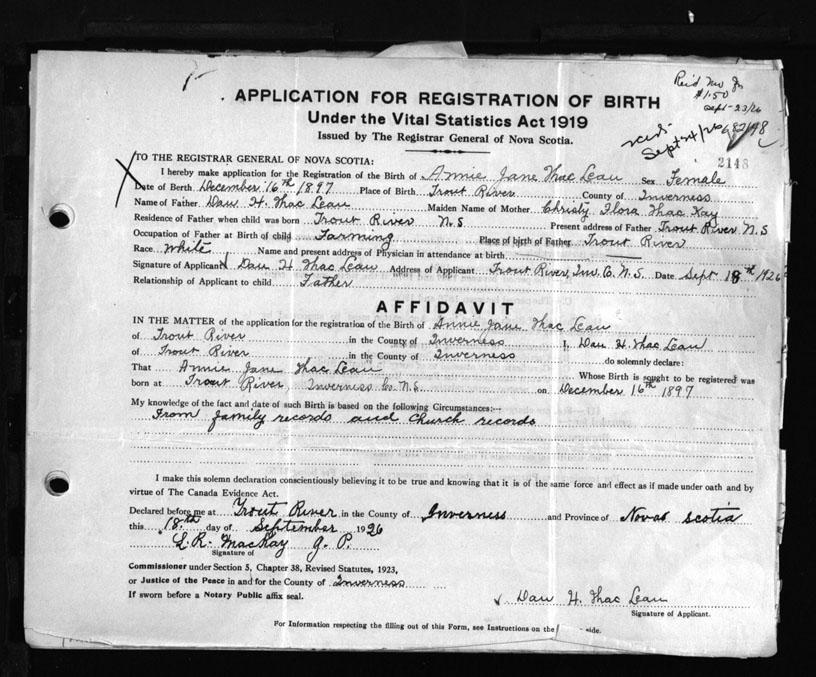 Rec'd
$1.50
Sept-23/26
APPLICATION FOR REGISTRATION OF BIRTH
Under the Vital Statistics Act 1919
Issued by The Registrar General of Nova Scotia.
Sept 24/26
2148
TO THE REGISTRAR GENERAL OF NOVA SCOTIA:
I hereby make application for the Registration of the Birth of Annie Jane MacLean Sex Female
Date of Birth December 16th 1897 Place of Birth Trout River County of Inverness
Name of Father Dan H. MacLean Maiden Name of Mother Christy Flora MacKay
Residence of Father when child was born Trout River N.S Present address of Father Trout River N.S
Occupation of Father at Birth of child Farming Place of birth of Father Trout River
Race White Name and present address of Physician in attendance at birth
Signature of Applicant Dan H MacLean Address of Applicant Trout River, Inv. C. N.S Date Sept 18th 1926
Relationship of Applicant to child Father
AFFIDAVIT
IN THE MATTER of the application for the registration of the Birth of Annie Jane MacLean
of Trout River in the County of Inverness I, Dan H. MacLean
of Trout River in the County of Inverness do solemnly declare:
That Annie Jane MacLean Whose Birth is sought to be registered was
born at Trout River, Inverness Co N.S. on December 16th 1897
My knowledge of the fact and date of such Birth is based on the following Circumstances:—
From family records and church records
I make this solemn declaration conscientiously believing it to be true and knowing that it is of the same force and effect as if made under oath and by
virtue of The Canada Evidence Act.
Declared before me at Trout River in the County of Inverness and Province of Nova Scotia
this 18th day of September 1926
L.R. MacKay J.P.
Signature of
Commissioner under Section 5, Chapter 38, Revised Statutes, 1923,
or Justice of the Peace in and for the County of Inverness
If sworn before a Notary Public affix seal.
Dan H. MacLean
Signature of Applicant.
For Information respecting the filling out of this Form, see Instructions on the side.